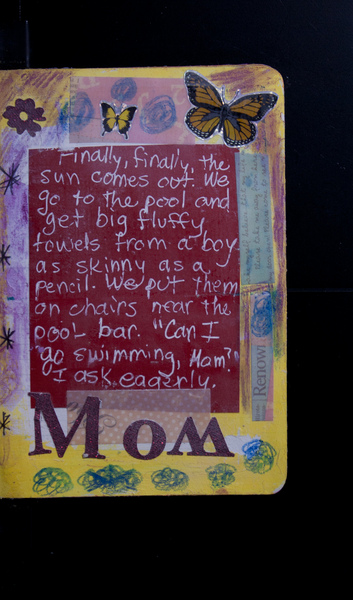 "Finally, finally, the
sun comes out. We
go to the pool and
get big fluffy
towels from a boy
as skinny as a
pencil. We put them
on chairs near the
pool bar. "Can I
go swimming, Mom?"
I ask eagerly.
Mom
Renowi